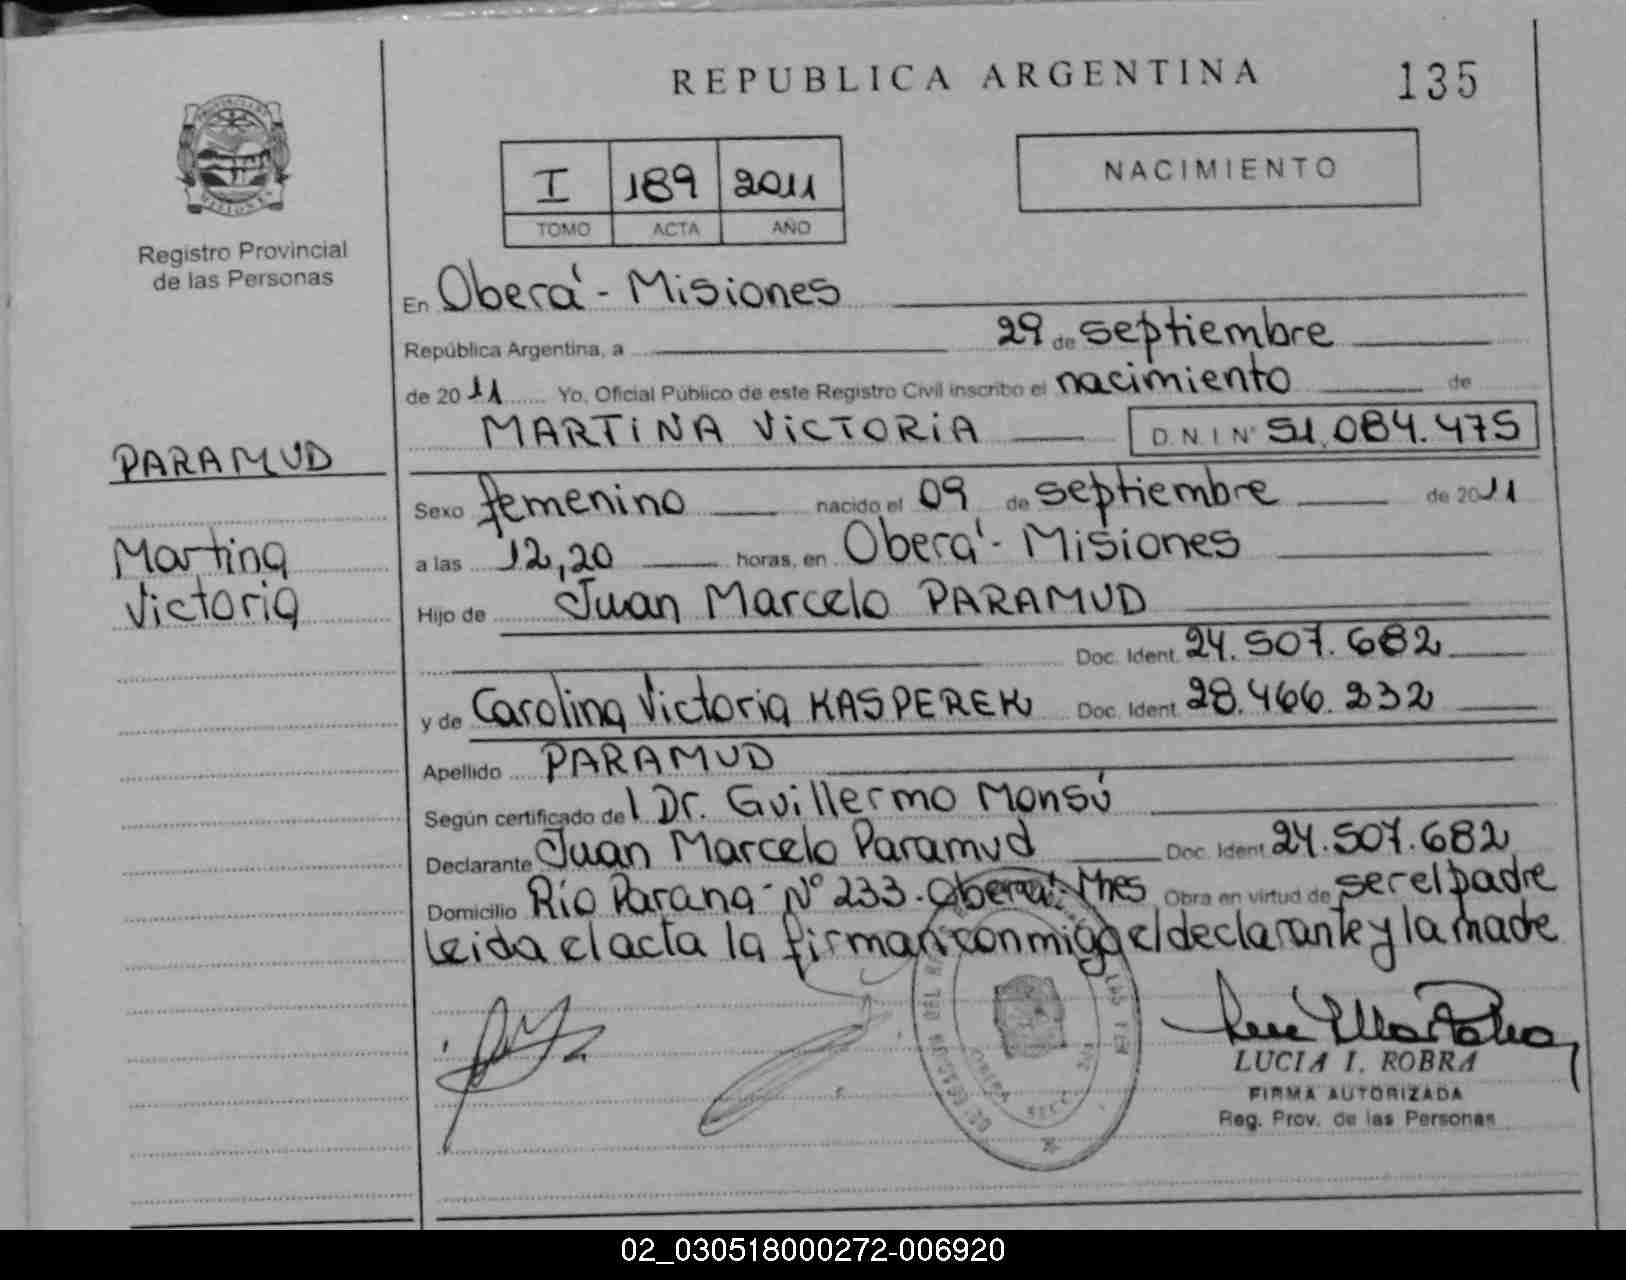 REPUBLICA ARGENTINA
135
I 189 2011
TOMO ACTA AÑO
NACIMIENTO
Registro Provincial
de las Personas
En Oberá - Misiones
República Argentina, a 29 de septiembre
de 2011 Yo, Oficial Público de este Registro Civil inscribo el nacimiento de
MARTINA VICTORIA D.N.I Nº 51.084.475
PARAMUD
Martina
Victoria
Sexo femenino nacido el 09 de septiembre de 2011
a las 12,20 horas, en Oberá - Misiones
Hijo de Juan Marcelo PARAMUD
Doc. Ident. 24.507.682
y de Carolina Victoria KASPEREK Doc. Ident. 28.466.232
Apellido PARAMUD
Según certificado del Dr. Guillermo Monsú
Declarante Juan Marcelo Paramud Doc. Ident. 24.507.682
Domicilio Río Paraná - Nº 233. Oberá. Mnes Obra en virtud de ser el padre
Leida el acta la firman conmigo el declarante y la madre
LUCIA I. ROBRA
FIRMA AUTORIZADA
Reg. Prov. de las Personas
02_030518000272-006920